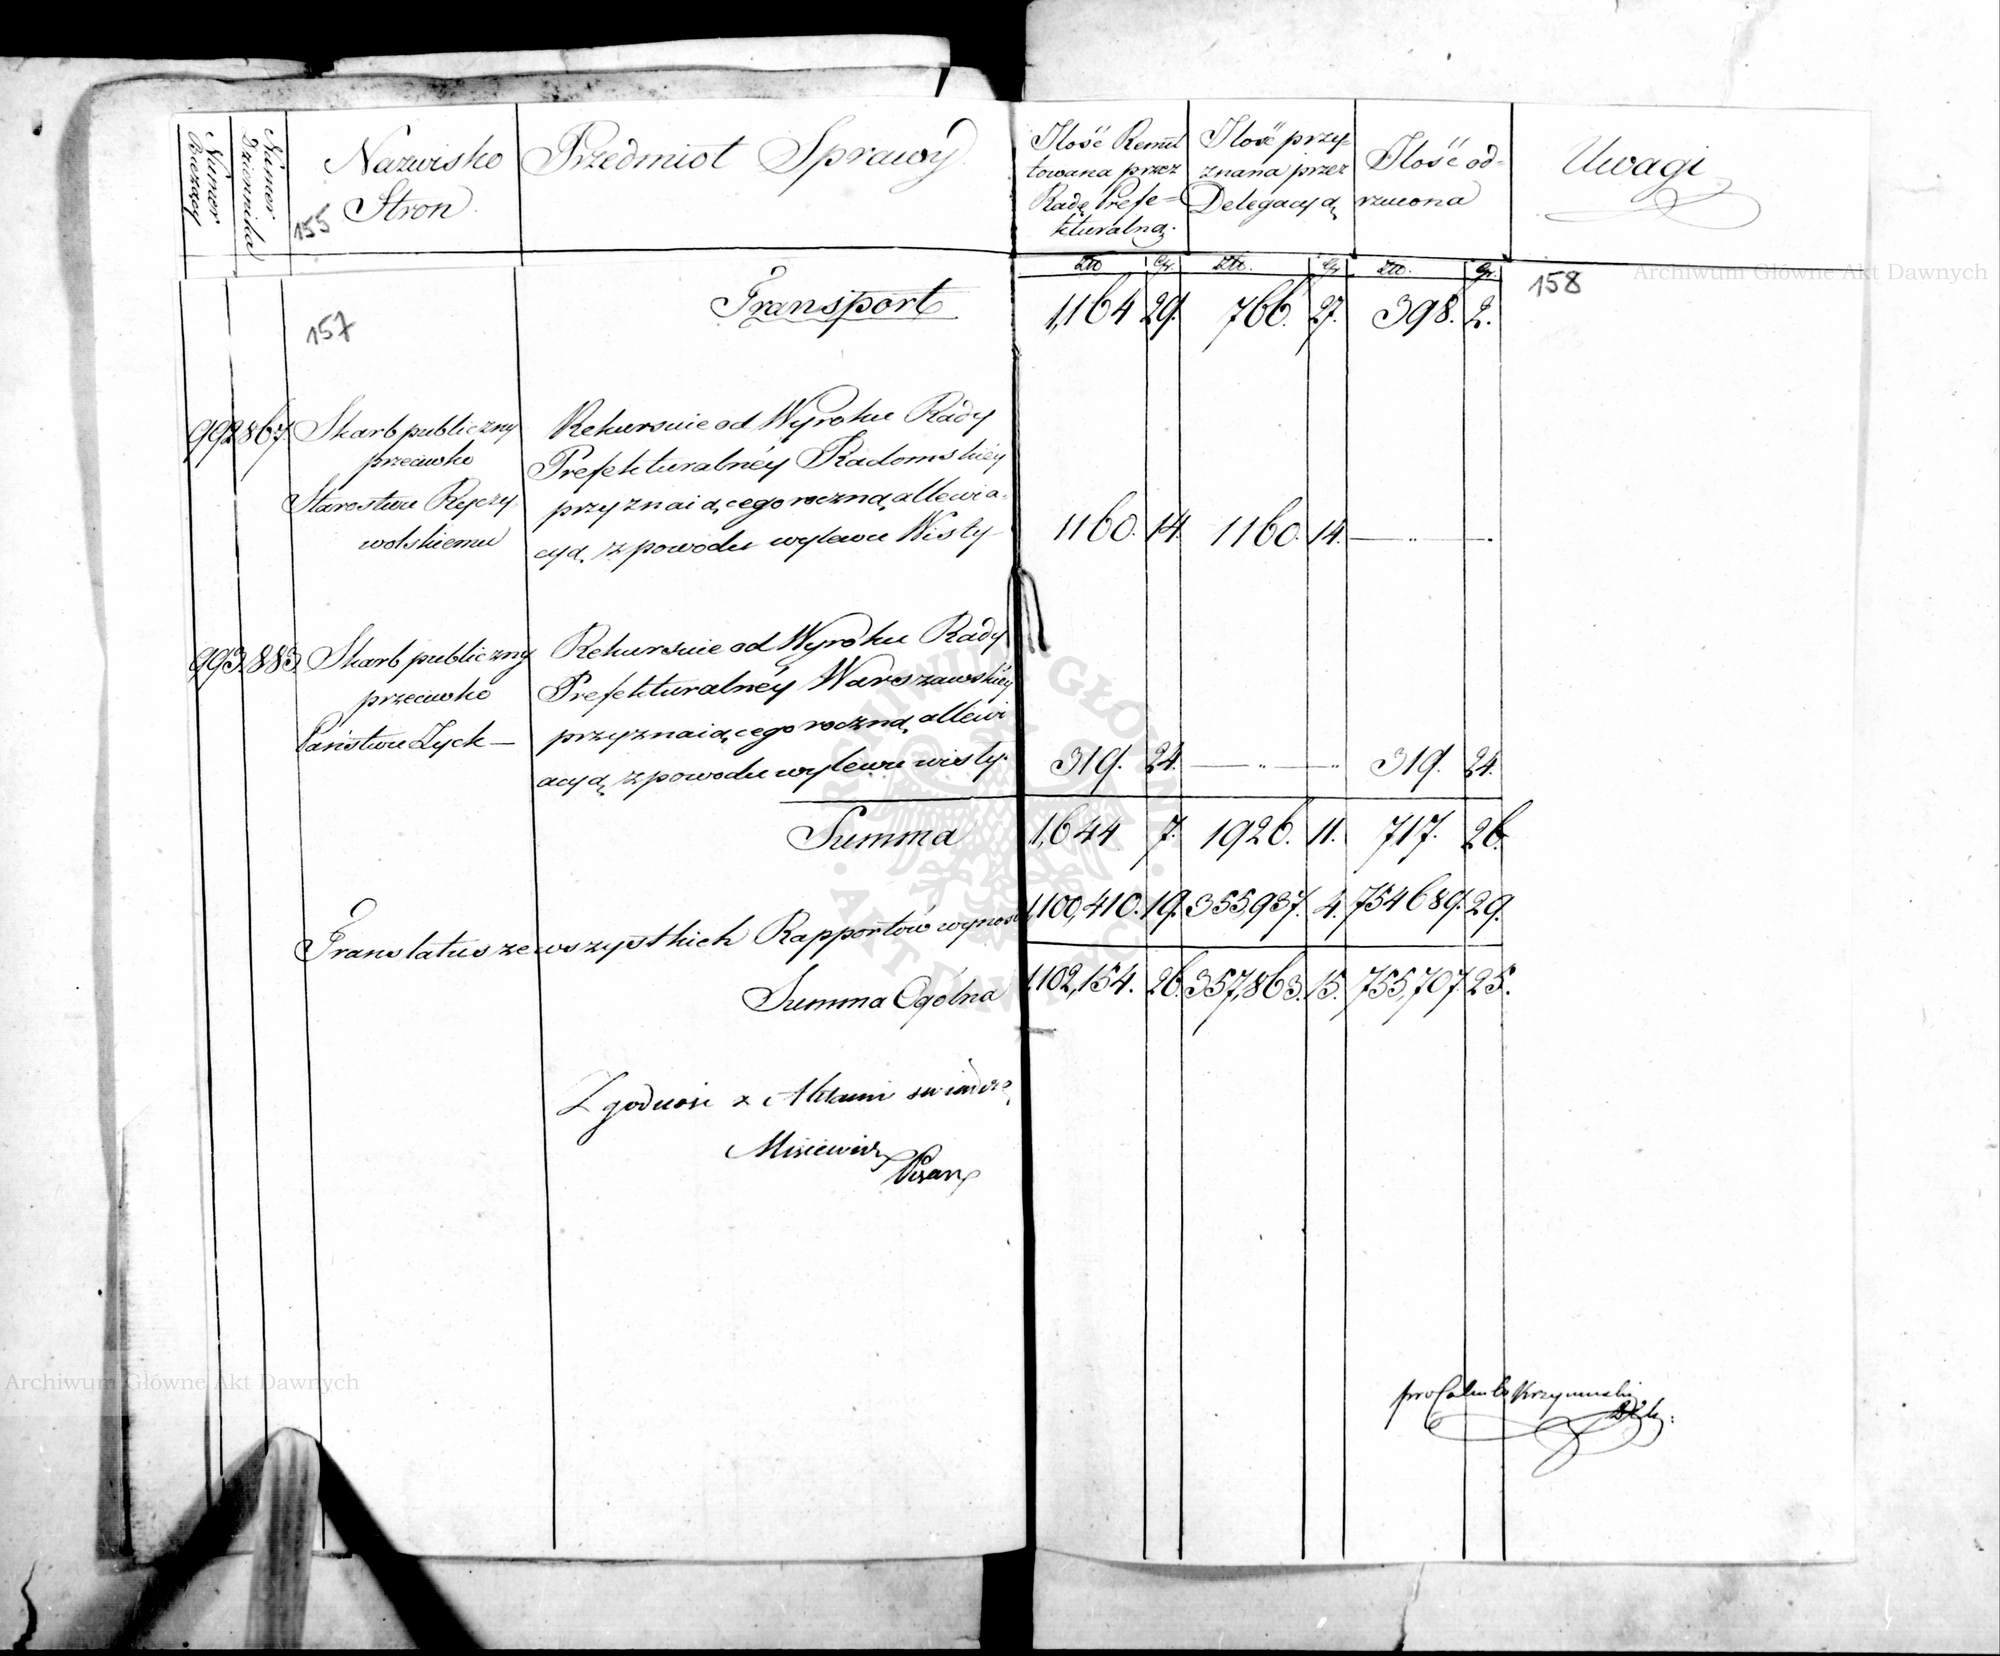 Numer Bieżący
Numer Dziennika
Nazwisko Stron
Przedmiot Sprawy
Ilość Remit
towana przez
Radę Prefe=
kturalną.
Ilość przy-
znana przez
Delegacyą
Ilość od-
rzucona
Uwagi
155
Złt. Gr. Złt. Gr. Złt. Gr.
158
157
Transport 1,164 29. 766. 27. 398. 2.
992 867. Skarb publiczny
przeciwko
Starostwu Ryczy
wolskiemu
Rekursie od Wyroku Rady
Prefekturalnéy Radomskiéy
przyznaiącego roczną allewia-
cyą z powodu wylewu Wisły
1160. 14. 1160. 14. — „ — „
993. 883. Skarb publiczny
przeciwko
Państwu Łyck —
Rekursie od Wyroku Rady
Prefekturalnéy Warszawskiéy
przyznaiącego roczną allewi
acyą z powodu wylewu wisły.
319. 24. — „ — „ 319. 24.
Summa 1,644 7. 1926. 11. 717. 26.
Translatus ze wszystkich Rapportów wynosi 1,100,410. 19. 355,937. 4. 754689. 29.
Summa Ogólna 1,102,154. 26. 357,863. 15. 755,707. 25.
Zgodność z Aktami świadczę
Misiewicz
Pisarz
pro Calculo Krzymuski
Archiwum Główne Akt Dawnych
Archiwum Główne Akt Dawnych
ARCHIWUM GŁÓWNE AKT DAWNYCH